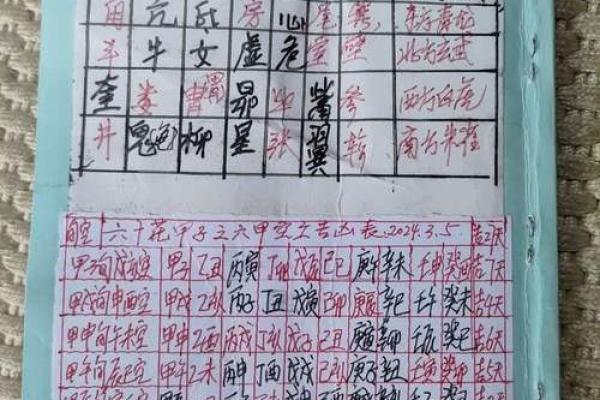 角 亢 氐 房 心 尾 箕, 东方苍龙
斗 牛 女 虚 危 室 壁 北方玄武
奎 娄 胃 昴 毕 觜 参 西方白虎
井 鬼 柳 星 张 翼 轸 南方朱雀
旬空 六十花甲子之六甲空亡吉凶表.2024.3.5 吉2天
甲子旬戌亥空 甲子 乙丑 丙寅 丁卯 戊辰 己巳 庚午 辛未 壬申 癸酉 吉7天
甲戌旬申酉空 甲戌 乙亥 丙子 丁丑 戊寅 己卯 庚辰 辛巳 壬午 癸未 吉4天
甲申旬午未空 甲申 乙酉 丙戌 丁亥 戊子 己丑 庚寅 辛卯 壬辰 癸巳 吉6天
甲午旬辰巳空 甲午 乙未 丙申 丁酉 戊戌 己亥 庚子 辛丑 壬寅 癸卯 吉5天